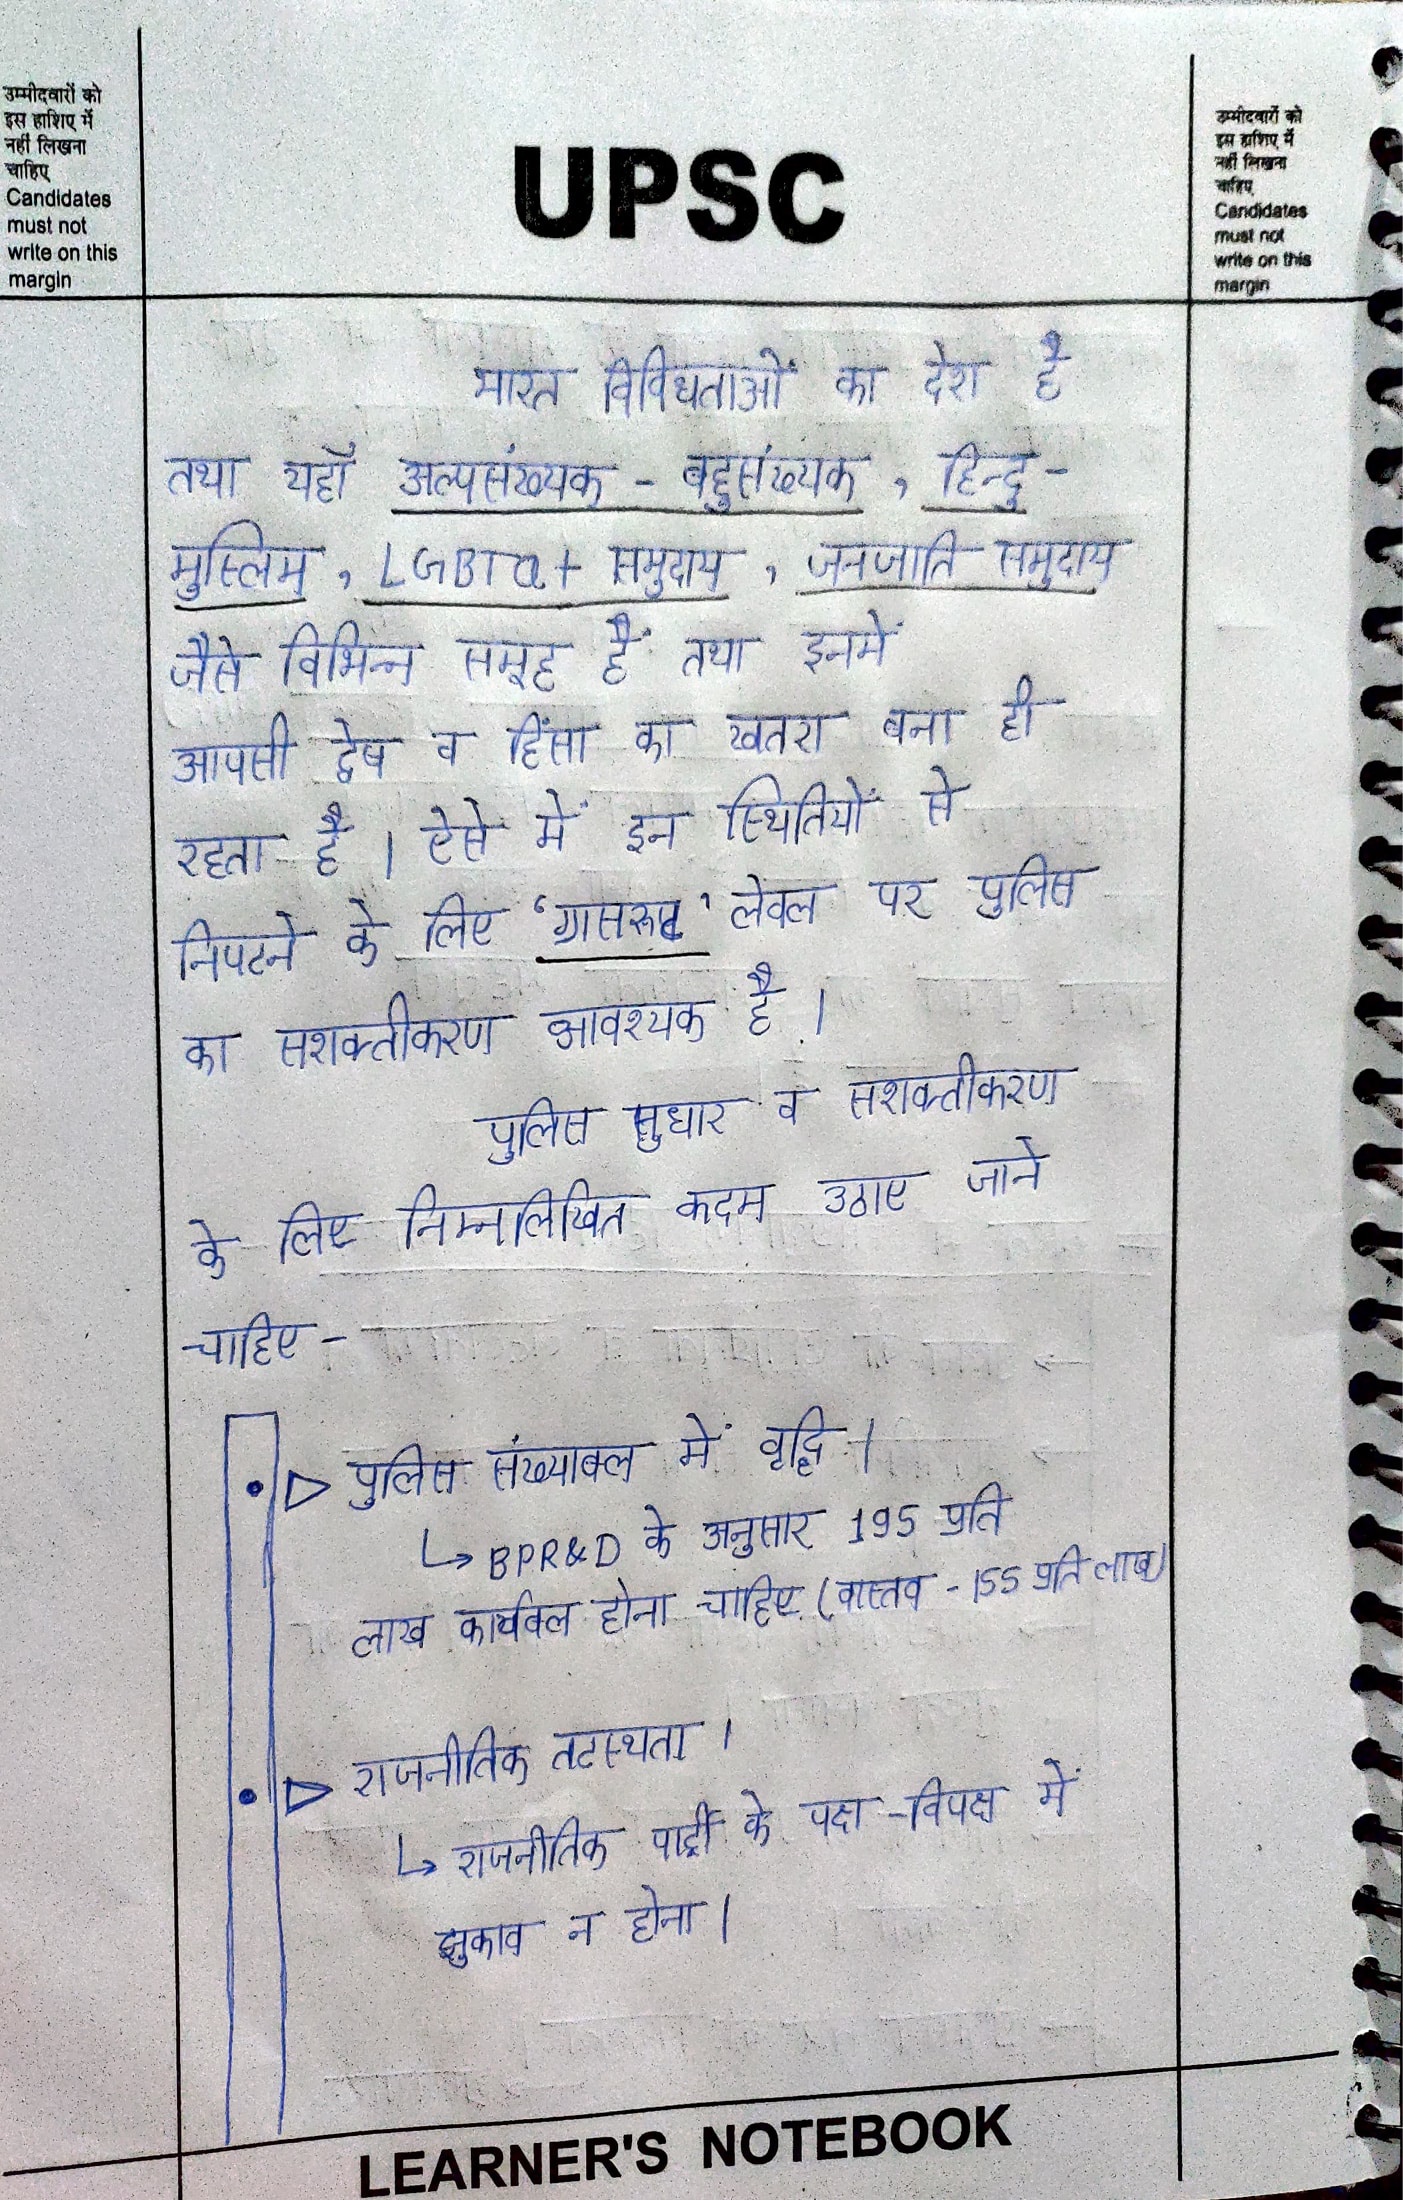 उम्मीदवारों को
इस हाशिए में
नहीं लिखना
चाहिए
Candidates
must not
write on this
margin
UPSC
उम्मीदवारों को
इस हाशिए में
नहीं लिखना
चाहिए
Candidates
must not
write on this
margin
भारत विविधताओं का देश है
तथा यहाँ अल्पसंख्यक - बहुसंख्यक , हिन्दु -
मुस्लिम , LGBTQ+ समुदाय , जनजाति समुदाय
जैसे विभिन्न समूह हैं तथा इनमें
आपसी द्वेष व हिंसा का खतरा बना ही
रहता है । ऐसे में इन स्थितियों से
निपटने के लिए 'ग्रासरूट' लेवल पर पुलिस
का सशक्तीकरण आवश्यक है ।
पुलिस सुधार व सशक्तीकरण
के लिए निम्नलिखित कदम उठाए जाने
चाहिए -
• ▷ पुलिस संख्याबल में वृद्धि ।
↳ BPR&D के अनुसार 195 प्रति
लाख कार्यबल होना चाहिए (वास्तव - 155 प्रति लाख)
• ▷ राजनीतिक तटस्थता ।
↳ राजनीतिक पार्टी के पक्ष - विपक्ष में
झुकाव न होना ।
LEARNER'S NOTEBOOK